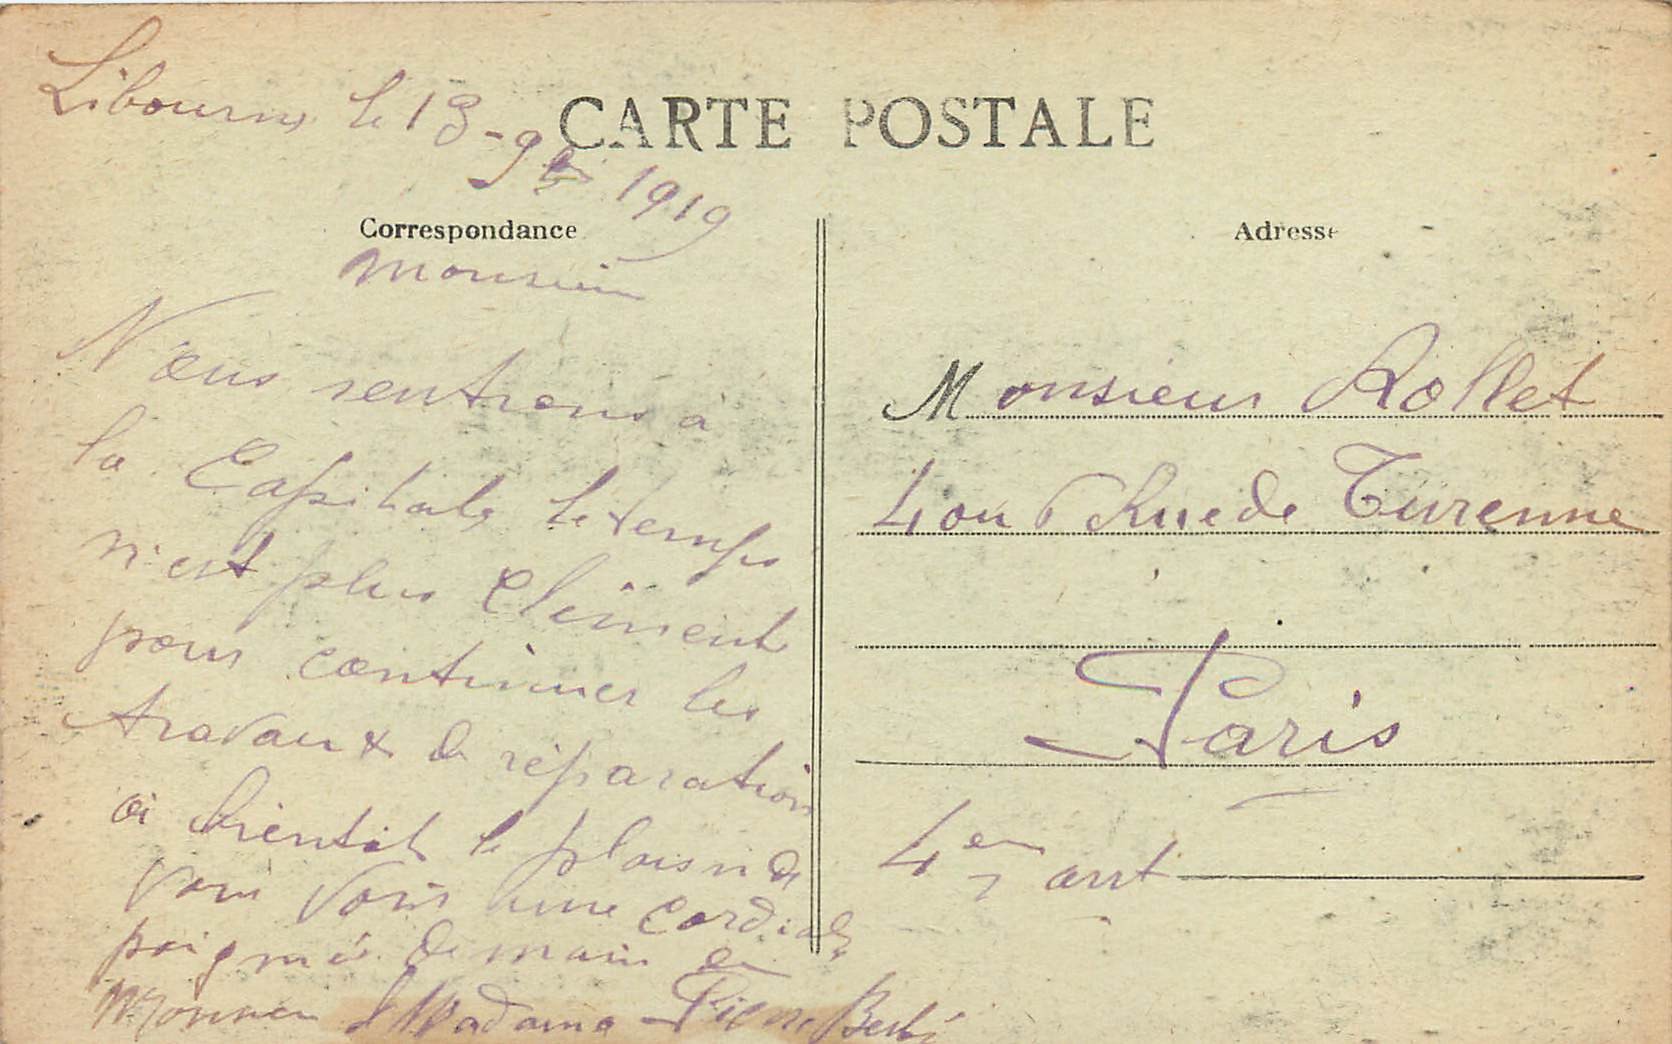 Libourne le 13 - 9bre 1919
CARTE POSTALE
Correspondance
Monsieur
Nous rentrons à
la Capitale le temps
n'est plus Clément
pour continuer les
travaux de réparation
à bientôt le plaisir de
vous voir une cordiale
poignée de main de
Monsieur & Madame Pierre
Adresse
Monsieur Rollet
4 ou 6 Rue de Turenne
Paris
4em art